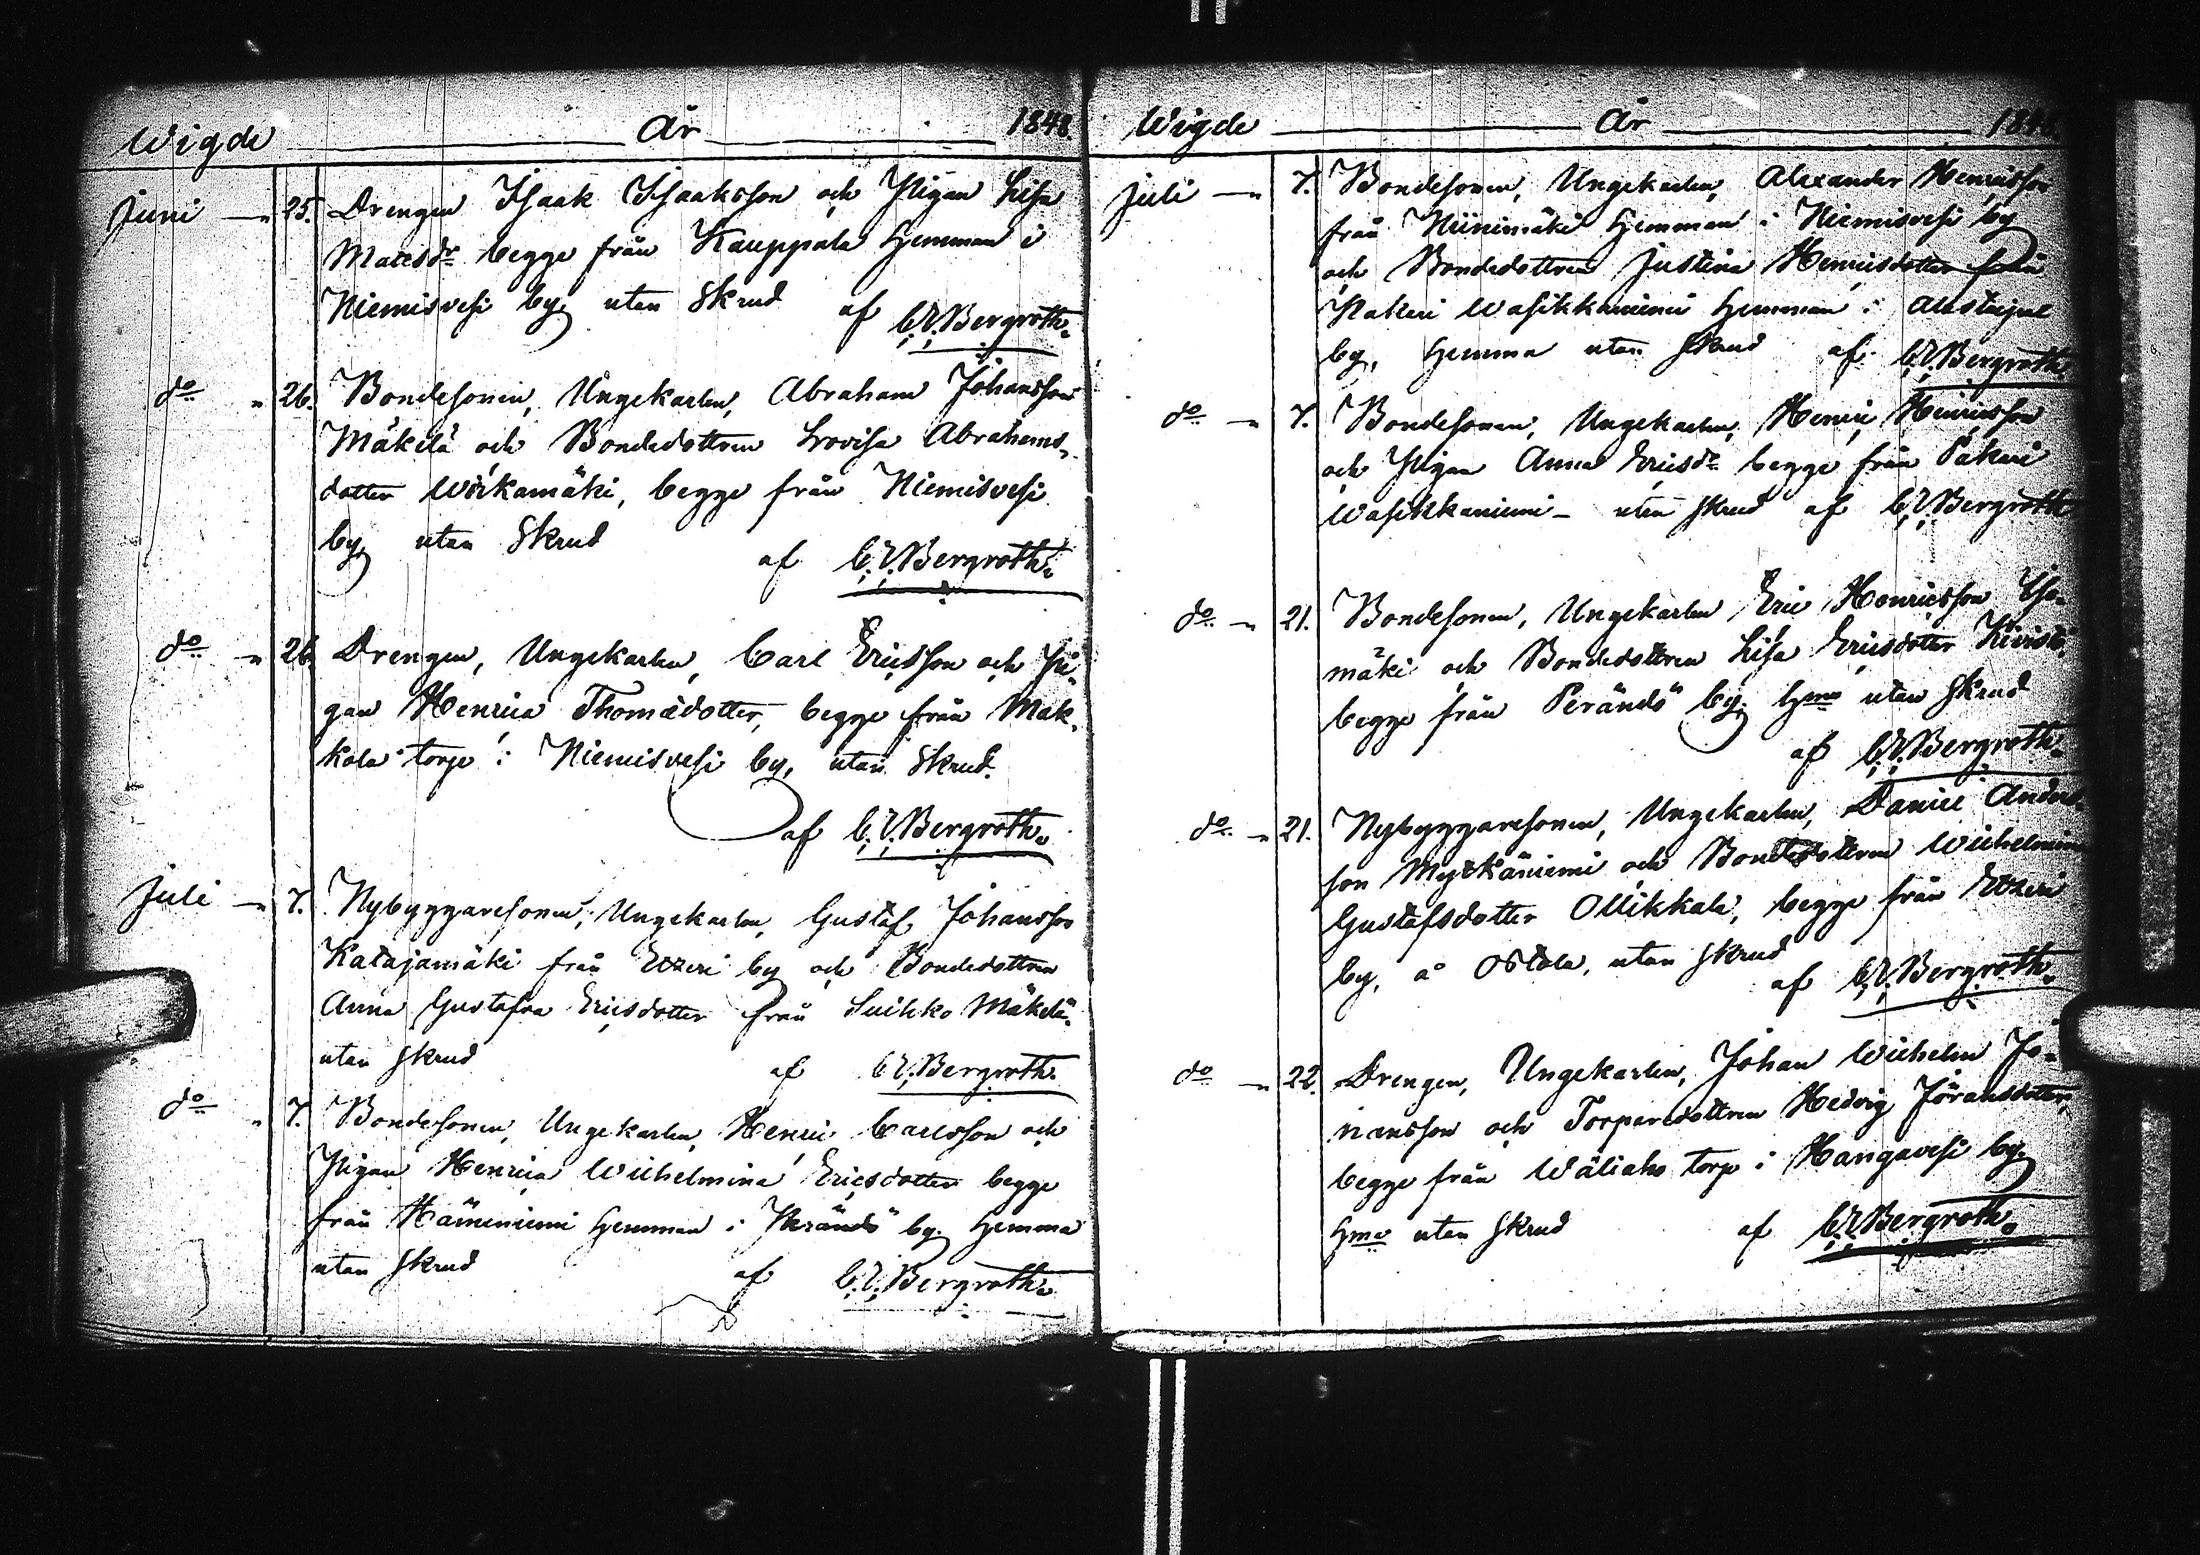 Wigde År 1848
Juni 25. Drengen Isaak Isaaksson och Pigan Lisa
Matsdr begge från Kauppala hemman i
Niemisvesi by, utan Skrud af C. V. Bergroth.
do 26. Bondesonen, Ungekarlen, Abraham Johansson
Mäkelä och Bondedottren Lovisa Abrahams-
dotter begge från Niemisvesi
by, utan Skrud
af C. V. Bergroth.
do 26. Drengen, Ungekarlen, Carl Ericsson och Pi-
gan Henrica Thomædotter, begge från Mak-
kola torp i Niemisvesi by, utan Skrud.
af C. V. Bergroth.
Juli 7. Nybyggaresonen, Ungekarlen, Gustaf Johansson
Katajamäki från Etzeri by och Bondedottren
Anna Gustafva Ericsdotter från Suihko Mäkelä
utan skrud af C. V. Bergroth.
do 7. Bondesonen, Ungekarlen, Henric Carlsson och
Pigan Henrica Wilhelmina Ericsdotter begge
från hemman i Perändö by. hemma
utan skrud af C. V. Bergroth.
Wigde År 1848
Juli 7. Bondesonen, Ungekarlen, Alexander Henricsson
från Niinimäki hemman i Niemisvesi by
och Bondedottren Justina Henricsdotter från
Pakari Wasikkaniemi hemman i
by, hemma utan Skrud af C. V. Bergroth.
do 7. Bondesonen, Ungekarlen, Henric Henricsson
och Pigan Anna Ericsdr begge från Pakari
Wasikkaniemi - utan skrud af C. V. Bergroth
do 21. Bondesonen, Ungekarlen Eric Henricsson Iso-
mäki och Bondedottren Lisa Ericsdotter Kivistö
begge från Perändö by, hma utan skrud
af C. V. Bergroth.
do 21. Nybyggaresonen, Ungekarlen, Daniel Anders-
son Myrkäniemi och Bondedottren Wilhelmina
Gustafsdotter Ollikkala, begge från Etzeri
by, å Ostola, utan skrud
af C. V. Bergroth.
do 22. Drengen, Ungekarlen, Johan Wilhelm Jo-
hansson och Torparedottren Hedvig Jöransdotter,
begge från Wäliaho torp i Hangavesi by.
hma utan skrud af C. V. Bergroth.